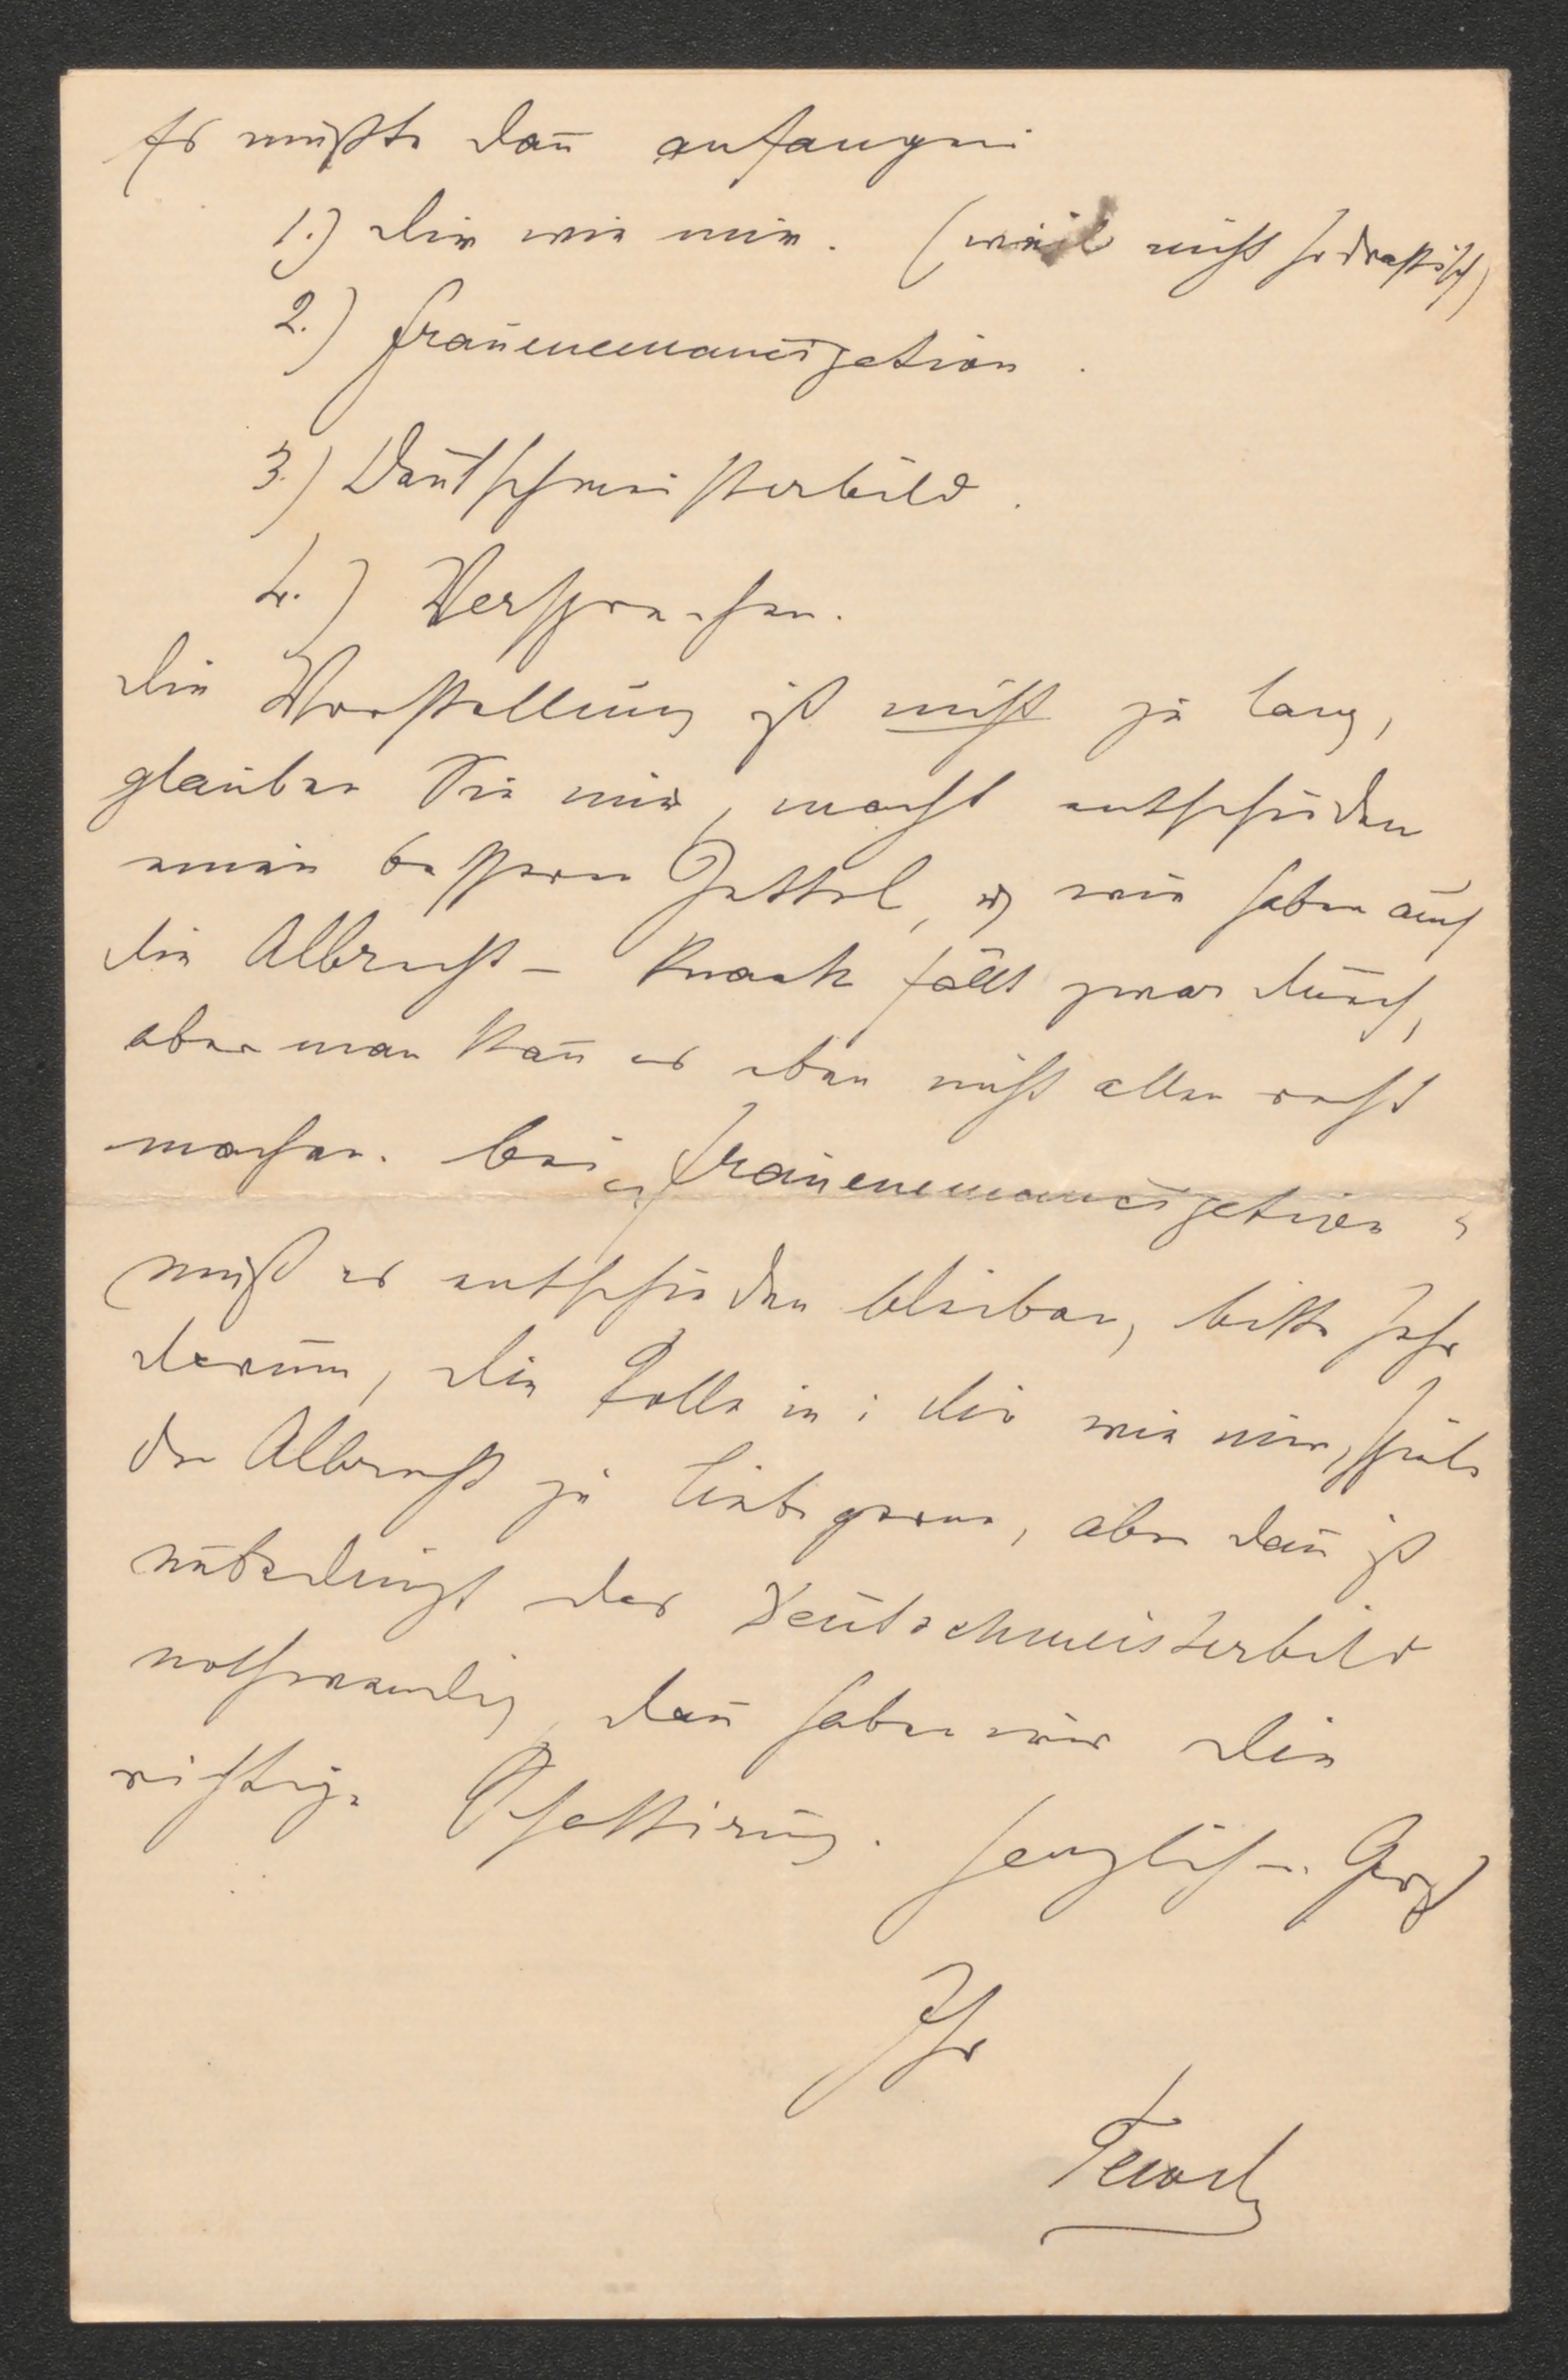 Es müßte dañ anfangen
1.) Dir wie mir. (weil nicht so drastisch)
2.) Frauenemancipation.
3.) Deutschmeisterbild.
4.) Versprechen.
Die Vorstellung ist nicht zu lang,
glauben Sie mir, macht entschieden
einen bessern Zettel, u wir haben auch
die Albrecht – Knaak fällt zwar durch,
aber man kañ es eben nicht allen recht
machen. bei „Frauenemancipation“
muß es entschieden bleiben, bitte sehr
darum, die Rolle in: Dir wie mir, spiele
die Albrecht zu liebe gerne, aber dañ ist
unbedingt das Deutschmeisterbild
nothwendig, dañ haben wir die
richtige Schattirung. herzlichen Gruß
Ihr